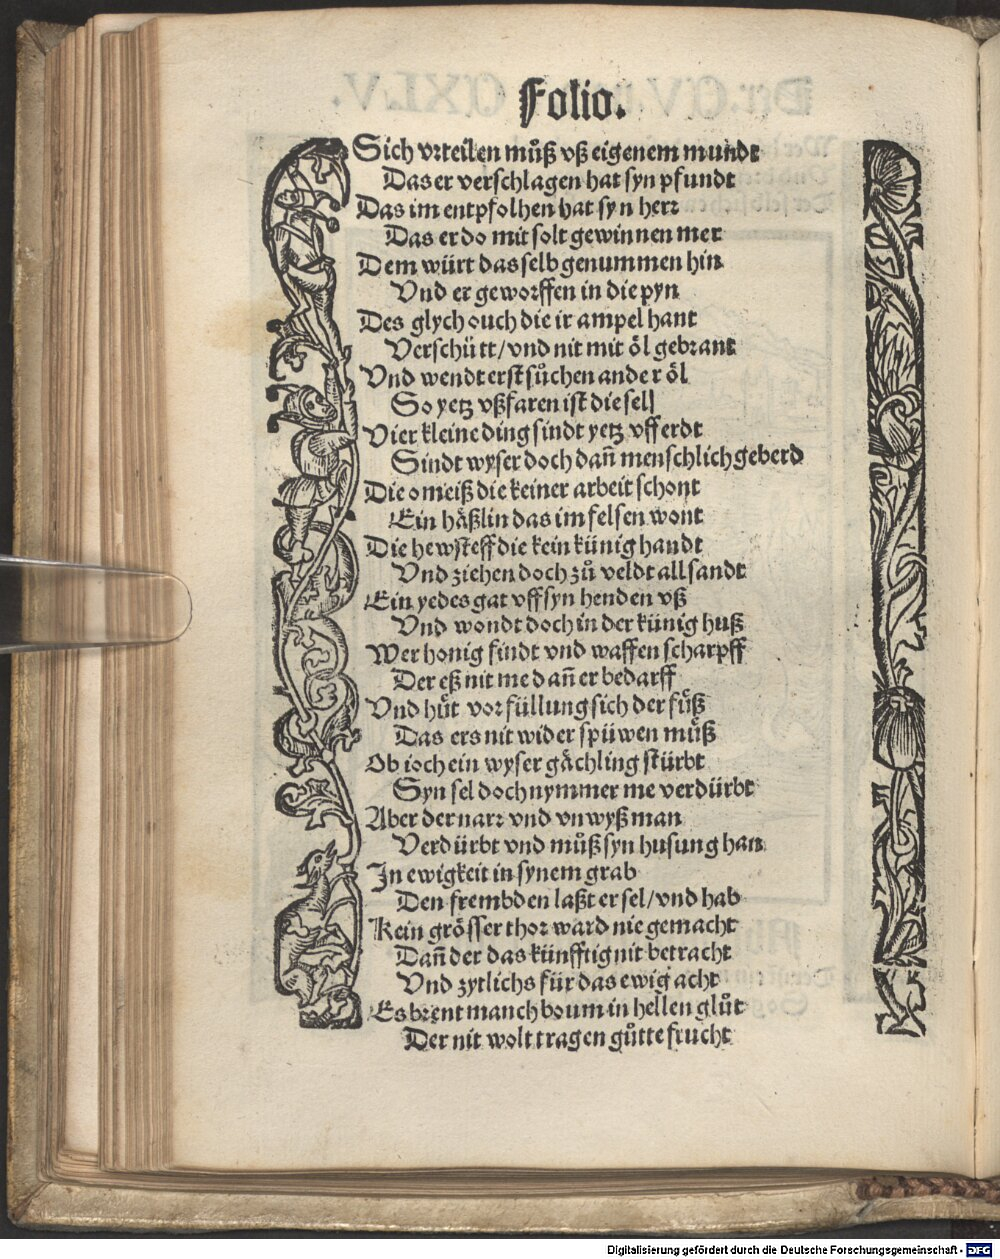 Folio.
Sich vrteilen můß vß eigenem mundt
Das er verschlagen hat syn pfundt
Das im entpfolhen hat syn herr
Das er do mit solt gewinnen mer
Dem würt das selb genummen hin
Vnd er geworffen in die pyn
Des glych ouch die ir ampel hant
Verschütt/vnd nit mit öl gebrant
Vnd wendt erst sůchen ander öl
So yetz vßfaren ist die sel
Vier kleine ding sindt yetz vff erdt
Sindt wyser doch dañ menschlich geberd
Die omeiß die keiner arbeit schont
Ein häßlin das im felsen wont
Die hewsteff die kein künig handt
Vnd ziehen doch zů veldt allsandt
Ein yedes gat vff syn henden vß
Vnd wondt doch in der künig huß
Wer honig findt vnd waffen scharpff
Der eß nit me dañ er bedarff
Vnd hüt vor füllung sich der füß
Das ers nit wider spüwen müß
Ob ioch ein wyser gächling stürbt
Syn sel doch nymmer me verdürbt
Aber der narr vnd vnwyß man
Verdürbt vnd můß syn husung han
In ewigkeit in synem grab
Den frembden laßt er sel/vnd hab
Kein grösser thor ward nie gemacht
Dañ der das künfftig nit betracht
Vnd zytlichs für das ewig acht
Es brent manch boum in hellen glůt
Der nit wolt tragen gůtte frucht
Digitalisierung gefördert durch die Deutsche Forschungsgemeinschaft - DFG